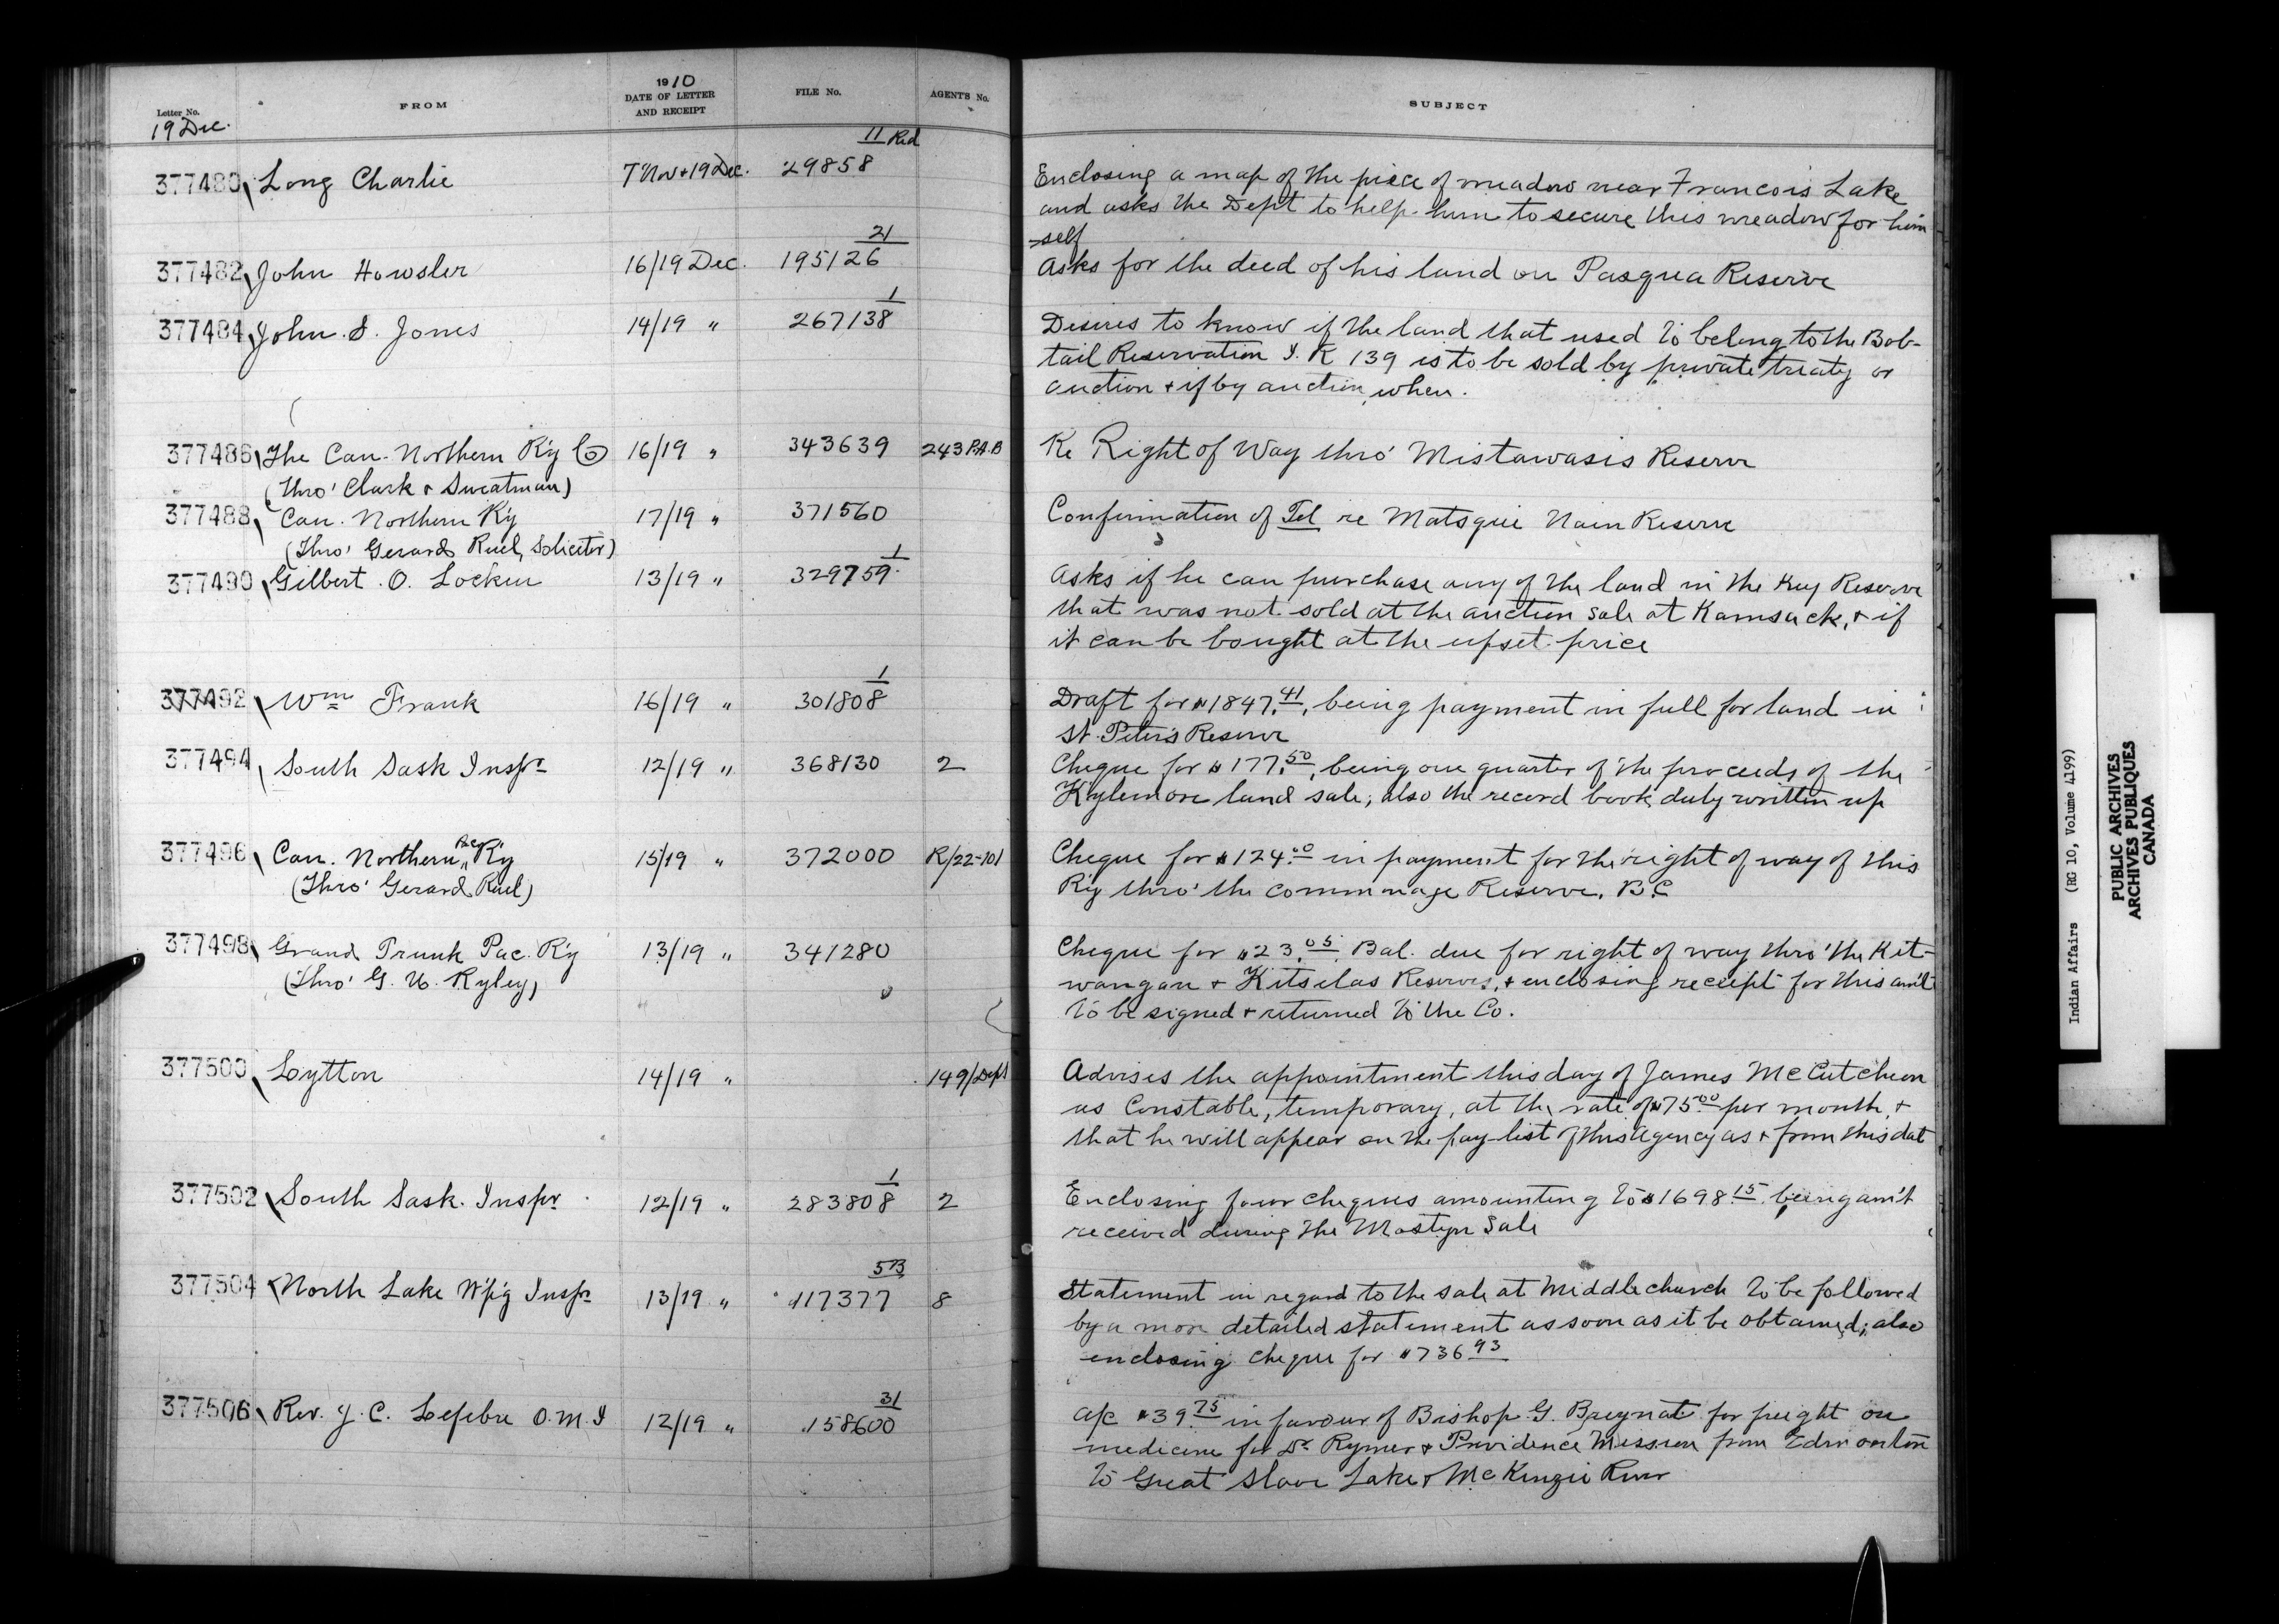 Letter No.
19 Dec.
FROM
1910
DATE OF LETTER
AND RECEIPT
FILE No.
AGENT'S No.
SUBJECT
377480 Long Charlie 7 Nov + 19 Dec. 29858 11 Red
Enclosing a map of the piece of meadow near Francois Lake
and asks the Dept to help him to secure this meadow for him
=self
377482 John Howsler 16/19 Dec. 195126 21
Asks for the deed of his land on Pasqua Reserve
377484 John S. Jones 14/19 " 267138 1
Desires to know if the land that used to belong to the Bob-
tail Reservation I. R 139 is to be sold by private treaty or
auction + if by auction, when.
377486 The Can. Northern R'y Co 16/19 " 343639 243 P.A.B
(Thro' Clark & Sweatman)
Re Right of Way thro' Mistawasis Reserve
377488 Can. Northern R'y 17/19 " 371560
(Thro' Gerard Ruel, Solicitor)
Confirmation of Tel re Matsqui Main Reserve
377490 Gilbert O. Locken 13/19 " 329759 1
Asks if he can purchase any of the land in the Key Reserve
that was not sold at the auction sale at Kamsack, + if
it can be bought at the upset price
377492 Wm Frank 16/19 " 301808 1
Draft for $1847.41, being payment in full for land in
St. Peter's Reserve
377494 South Sask Inspr 12/19 " 368130 2
Cheque for $177.50, being one quarter of the proceeds of the
Kylemore land sale, also the record book duly written up
377496 Can. Northern Pac R'y 15/19 " 372000 R/22-101
(Thro' Gerard Ruel)
Cheque for $124.00 in payment for the right of way of this
R'y thro' the commonage Reserve, B.C
377498 Grand Trunk Pac. R'y 13/19 " 341280
(Thro' G. U. Ryley)
Cheque for $23.05. Bal. due for right of way thro' the Kit-
wangar + Kitselas Reserves, + enclosing receipt for this am't
to be signed + returned to the Co.
377500 Lytton 14/19 " 149/Dept
Advises the appointment this day of James McCutcheon
as Constable, temporary, at the rate of $75.00 per month, +
that he will appear on the pay-list of this Agency as + from this dat
377502 South Sask. Inspr 12/19 " 283808 1 2
Enclosing four cheques amounting to $1698.15 being am't
received during the Mostyn Sale
377504 North Lake W'p'g Inspr 13/19 " 117377 5B 8
Statement in regard to the sale at Middlechurch to be followed
by a more detailed statement as soon as it be obtained; also
enclosing cheque for $736.93
377506 Rev. J. C. Lefebre O.M.I 12/19 " 158600 31
A/c $39.75 in favour of Bishop G. Breynat for freight on
medicine for Dr Rymer & Providence Mission from Edmonton
to Great Slave Lake & McKenzie River
Indian Affairs (RG 10, Volume 4199)
PUBLIC ARCHIVES
ARCHIVES PUBLIQUES
CANADA